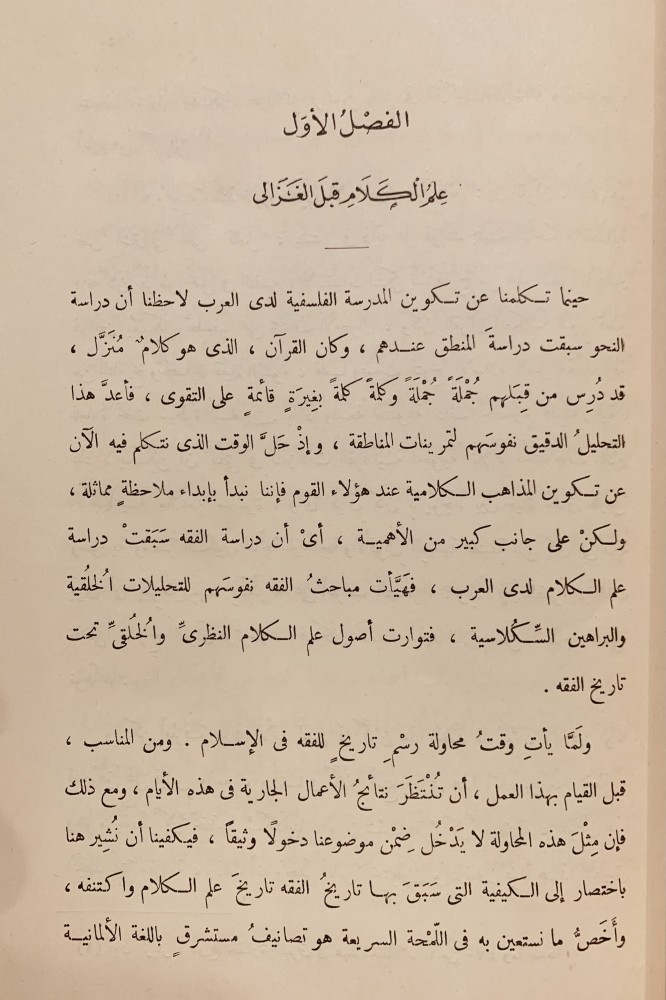 الفصْلُ الأوّل
عِلمُ الْكَلَامِ قبلَ الغَزَالى
حينما تكلمنا عن تكوين المدرسة الفلسفية لدى العرب لاحظنا أن دراسة
النحو سبقت دراسةَ المنطق عندهم ، وكان القرآن ، الذى هو كلامٌ مُنَزَّل ،
قد دُرِس من قِبَلهم جُمْلَةً جُمْلَةً وكلمةً كلمةً بغِيرَةٍ قائمةٍ على التقوى ، فأعدَّ هذا
التحليلُ الدقيق نفوسَهم لتمرينات المناطقة ، وإذْ حَلَّ الوقت الذى نتكلم فيه الآن
عن تكوين المذاهب الكلامية عند هؤلاء القوم فإننا نبدأ بإبداء ملاحظةٍ مماثلة ،
ولكنْ على جانب كبير من الأهمية ، أىْ أن دراسة الفقه سَبَقتْ دراسة
علم الكلام لدى العرب ، فهَيَّأت مباحثُ الفقه نفوسَهم للتحليلات الخُلُقية
والبراهين السِّكُلاسية ، فتوارت أصول علم الكلام النظرىِّ والخُلقىِّ تحت
تاريخ الفقه .
ولَمَّا يأتِ وقتُ محاولة رسْمِ تاريخٍ للفقه فى الإسلام . ومن المناسب ،
قبل القيام بهذا العمل ، أن تُنْتَظَرَ نتائجُ الأعمال الجارية فى هذه الأيام ، ومع ذلك
فإن مِثْلَ هذه المحاولة لا يَدْخُل ضِمْن موضوعنا دخولًا وثيقاً ، فيكفينا أن نُشِير هنا
باختصار إلى الكيفية التى سَبَقَ بها تاريخُ الفقه تاريخَ علم الكلام واكتنفه ،
وأَخَصُّ ما نستعين به فى اللّمْحة السريعة هو تصانيفُ مستشرقٍ باللغة الألمانية